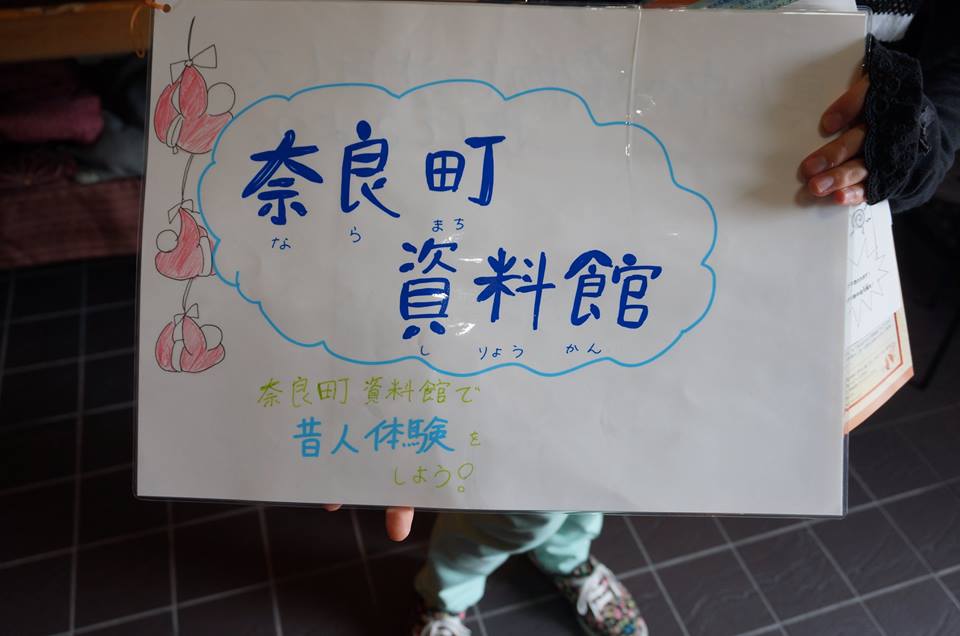 奈良町
な ら まち
資料館
し りょう かん
奈良町資料館で
昔人体験を
しよう!